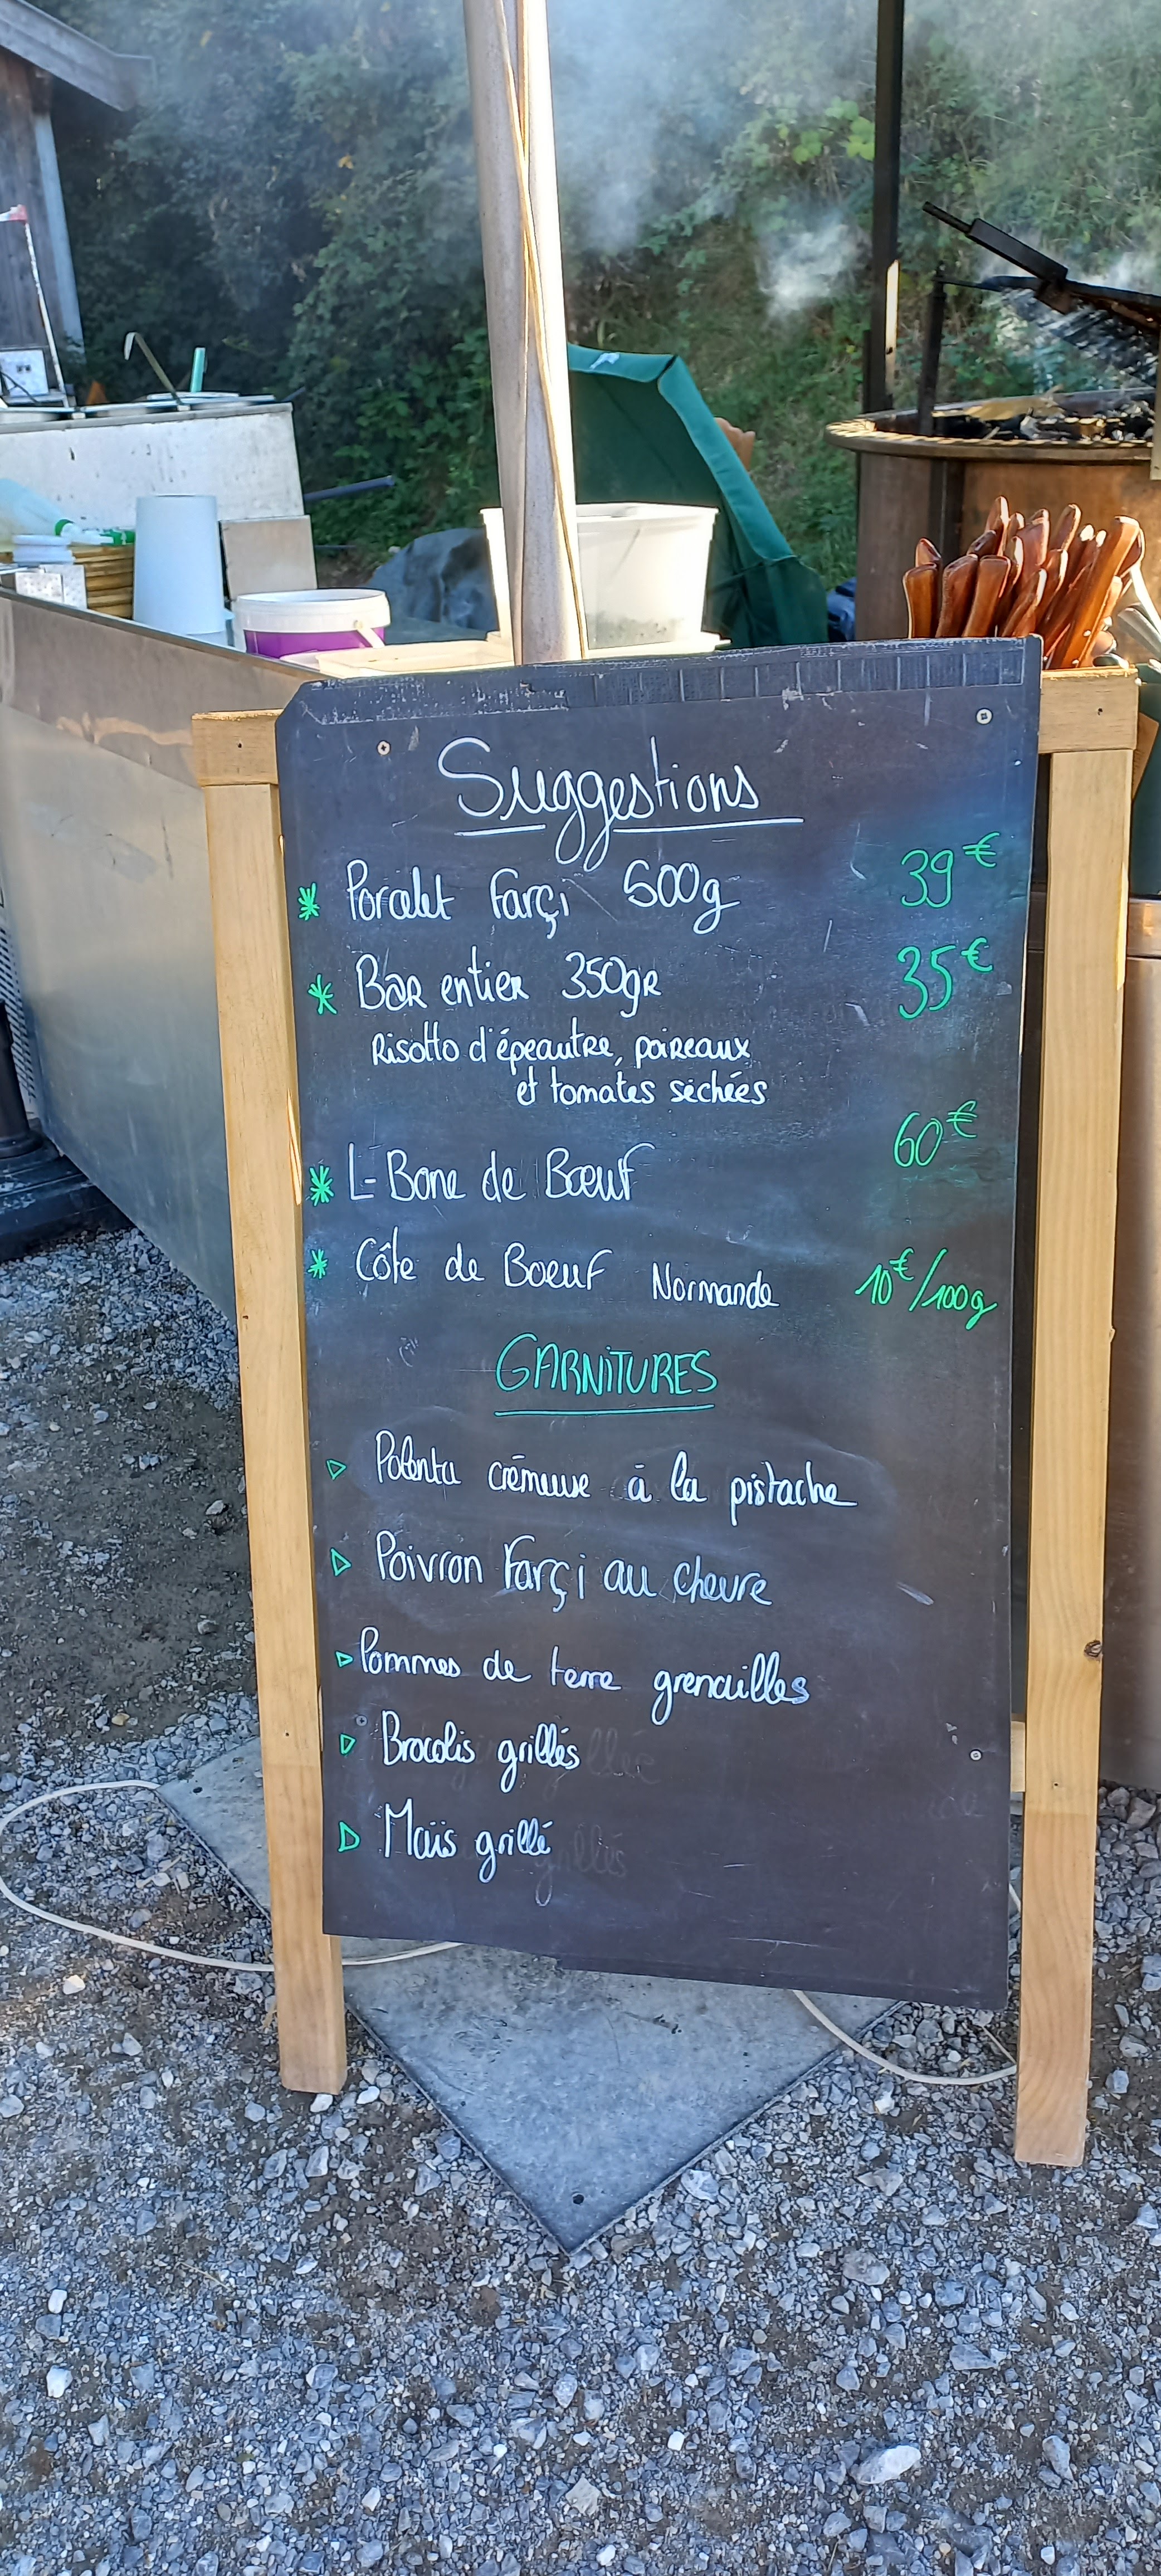 Suggestions
* Porcelet Farçi 500g 39€
* Bar entier 350gr 35€
Risotto d'épeautre, poireaux
et tomates séchées
* L-Bone de Bœuf 60€
* Côte de Boeuf Normande 10€/100g
GARNITURES
▷ Polenta crémeuse à la pistache
▷ Poivron Farçi au chevre
▷ Pommes de terre grenailles
▷ Brocolis grillés
▷ Maïs grillé